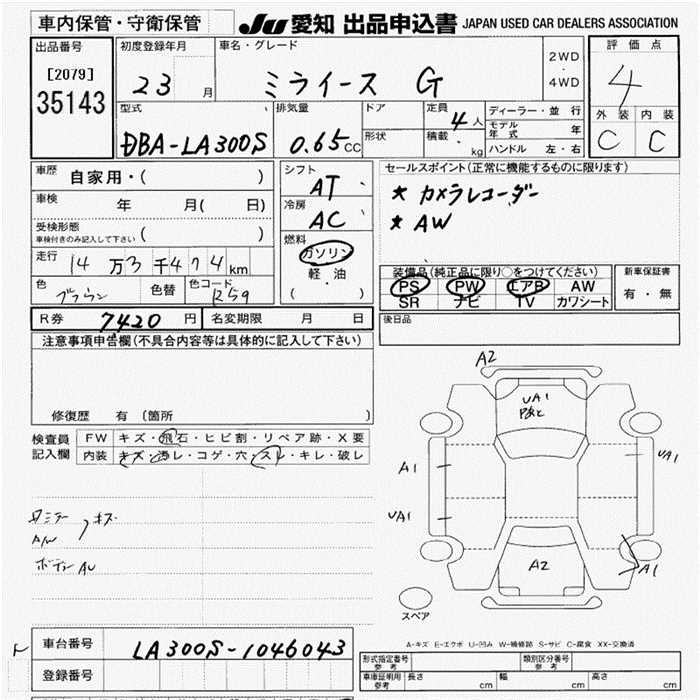 車内保管・守衛保管
JU 愛知 出品申込書 JAPAN USED CAR DEALERS ASSOCIATION
出品番号 初度登録年月 車名・グレード 評価点
[2079] 23 月 ミライース G 2WD・4WD 4
35143 型式 排気量 ドア 定員 4人 ディーラー・並行 外装 内装
DBA-LA300S 0.65 CC 形状 積載 kg モデル年式 年 C C
ハンドル 左・右
車歴 自家用・( ) シフト AT セールスポイント(正常に機能するものに限ります)
車検 年 月( 日) 冷房 AC * カメラレコーダー
受検形態 * AW
車検付きのみ記入して下さい ( ) 燃料
走行 14万3千474km ガソリン
軽・油
( )
装備品(純正品に限り○をつけてください) 新車保証書
色 ブラウン 色替 色コード R59 PS PW エアB AW 有・無
SR ナビ TV カワシート
R券 7420円 名変期限 月 日 後日品
注意事項申告欄(不具合内容等は具体的に記入して下さい)
修復歴 有 (箇所 )
検査員 FW キズ・飛石・ヒビ割・リペア跡・X要
記入欄 内装 キズ・汚レ・コゲ・穴・スレ・キレ・破レ
A2
UA1
A1
UA1
UA1
A2
A1
キズ
A/W
ボディ AU
スペア
A-キズ E-エクボ U-凹み W-補修跡 S-サビ C-腐食 XX-交換済
車台番号 LA300S-1046043
登録番号
形式指定番号 参考 類別区分番号 参考
車庫証明用 参考 長さ cm 幅 cm 高さ cm